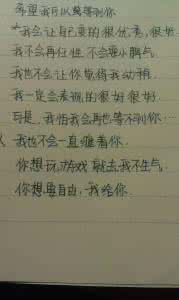 希望我可以真等到你
我会让自己变的很优秀,很好
我不会再任性 不会耍小脾气
我也不会让你觉得我幼稚
我一定会表现的很好很好
可是,我怕我会再也等不到你
我也不会一直缠着你
你想玩游戏 就去我不生气
你想要自由,我给你